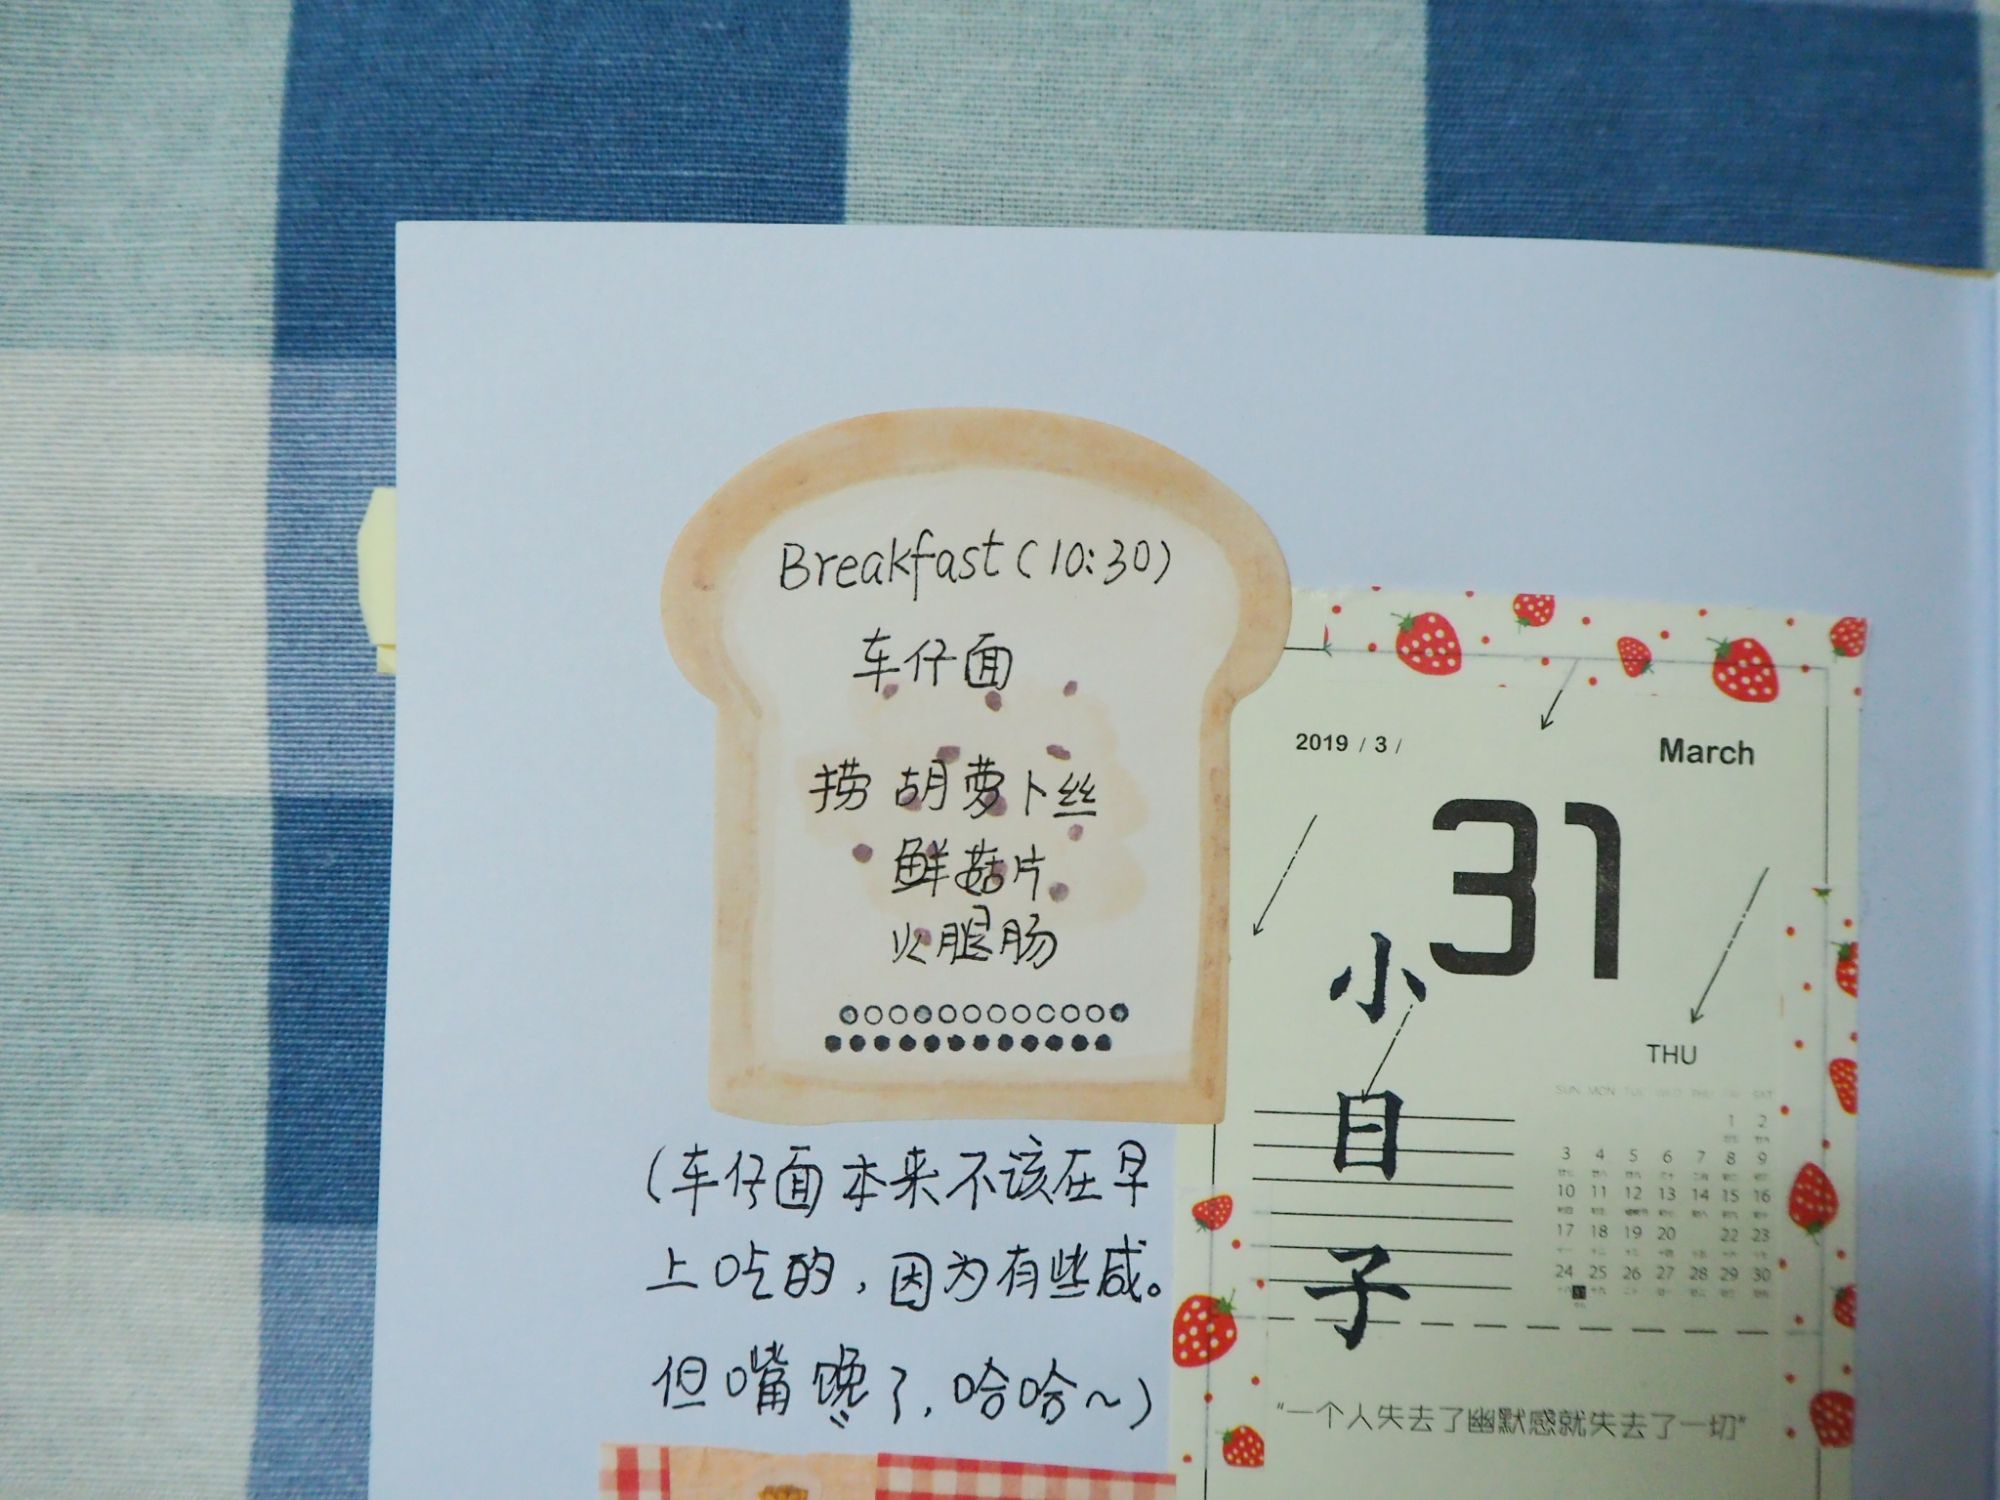 Breakfast(10:30)
车仔面
捞 胡萝卜丝
鲜菇片
火腿肠
(车仔面本来不该在早
上吃的，因为有些咸。
但嘴馋了，哈哈～)
2019 / 3 /
March
31
THU
小日子
SUN MON TUE WED THU FRI SAT
1 2
3 4 5 6 7 8 9
10 11 12 13 14 15 16
17 18 19 20 22 23
24 25 26 27 28 29 30
31
“一个人失去了幽默感就失去了一切”